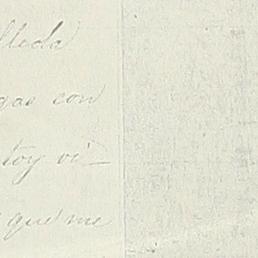 lleda
gas con
toy vi-
que me